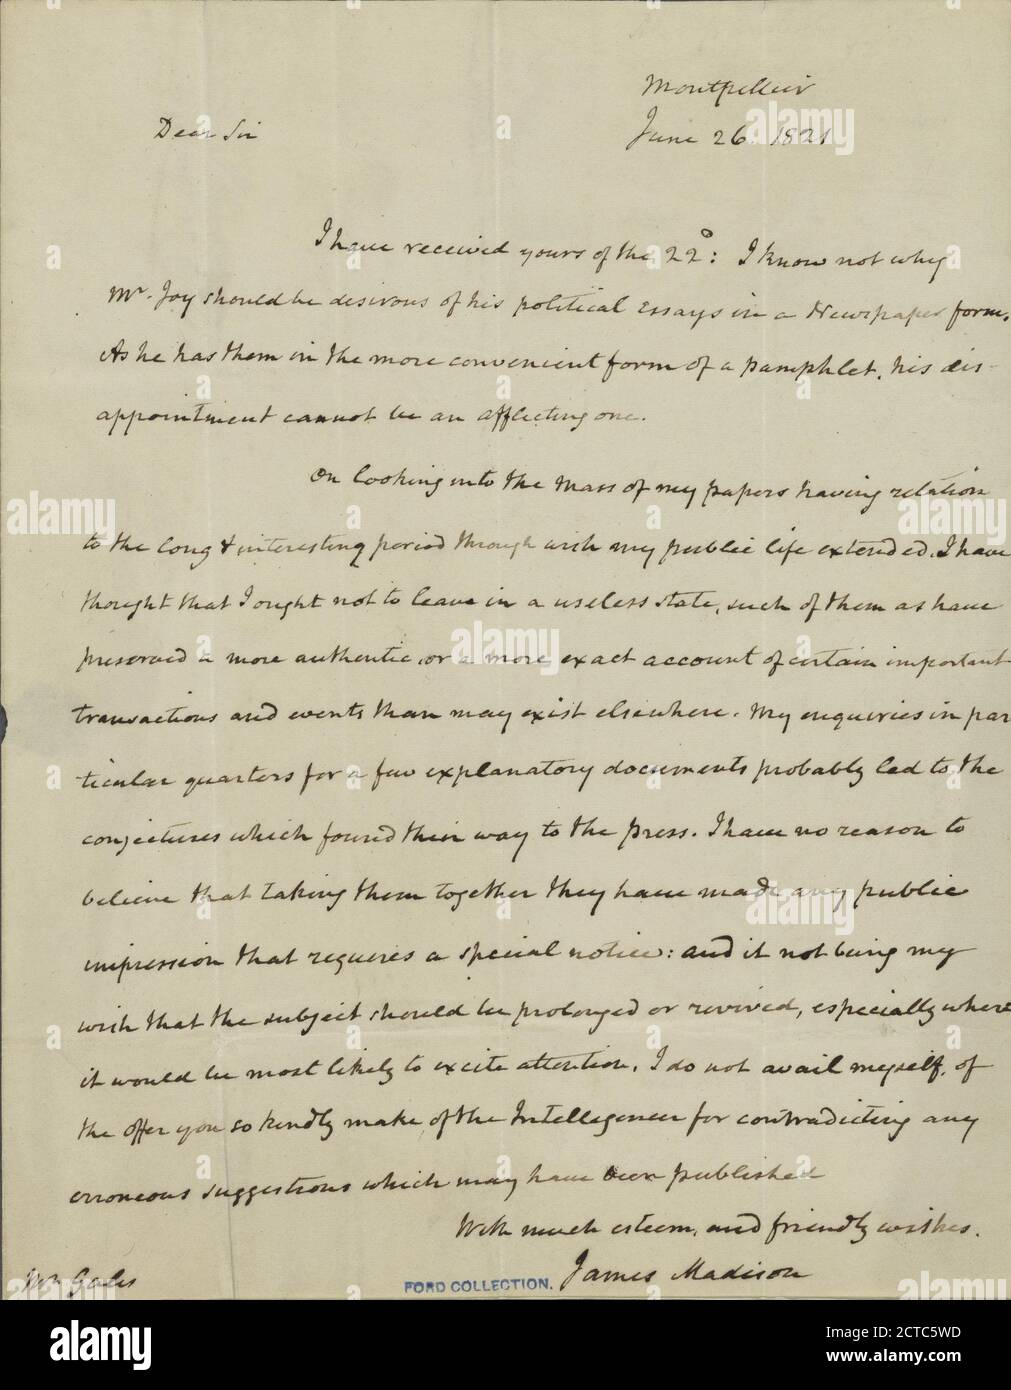 Montpellier
June 26. 1821
Dear Sir
I have received yours of the 22º: I know not why
Mr. Joy should be desirous of his political Essays in a Newspaper form.
As he has them in the more convenient form of a pamphlet, his dis-
appointment cannot be an afflicting one.
On looking into the Mass of my papers having relation
to the long & interesting period through wich my public life extended, I have
thought that I ought not to leave in a useless state, such of them as have
preserved a more authentic, or a more exact account of certain important
transactions and events than may exist elsewhere. My enquiries in par
ticular quarters for a few explanatory documents probably led to the
conjectures which found their way to the press. I have no reason to
believe that taking them together they have made any public
impression that requires a special notice: and it not being my
wish that the subject should be prolonged or revived, especially where
it would be most likely to excite attention, I do not avail myself, of
the offer you so kindly make, of the Intelligencer for contradicting any
erroneous suggestions which may have been published
With much esteem, and friendly wishes.
James Madison
Mr. Gales
FORD COLLECTION.
alamy
Image ID: 2CTC5WD
www.alamy.com